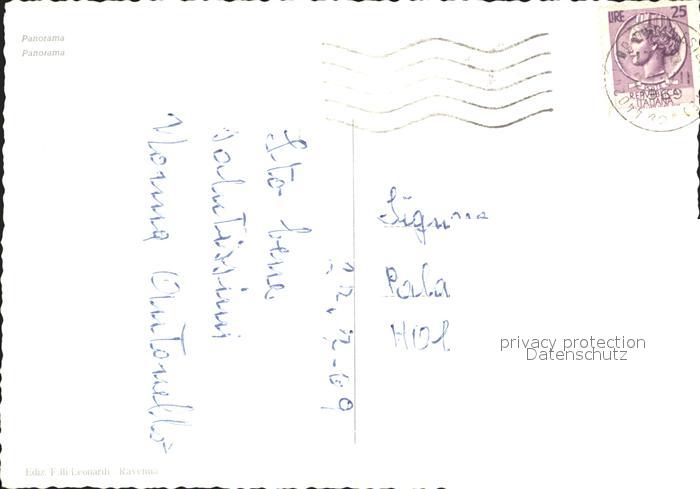 Panorama
Panorama
LIRE 25
REPUBBLICA
ITALIANA
22.12-69
Sto bene
salutissimi
Nonna Antonella
Signora
Pala
HOL
privacy protection
Datenschutz
Ediz. F.lli Leonardi - Ravenna